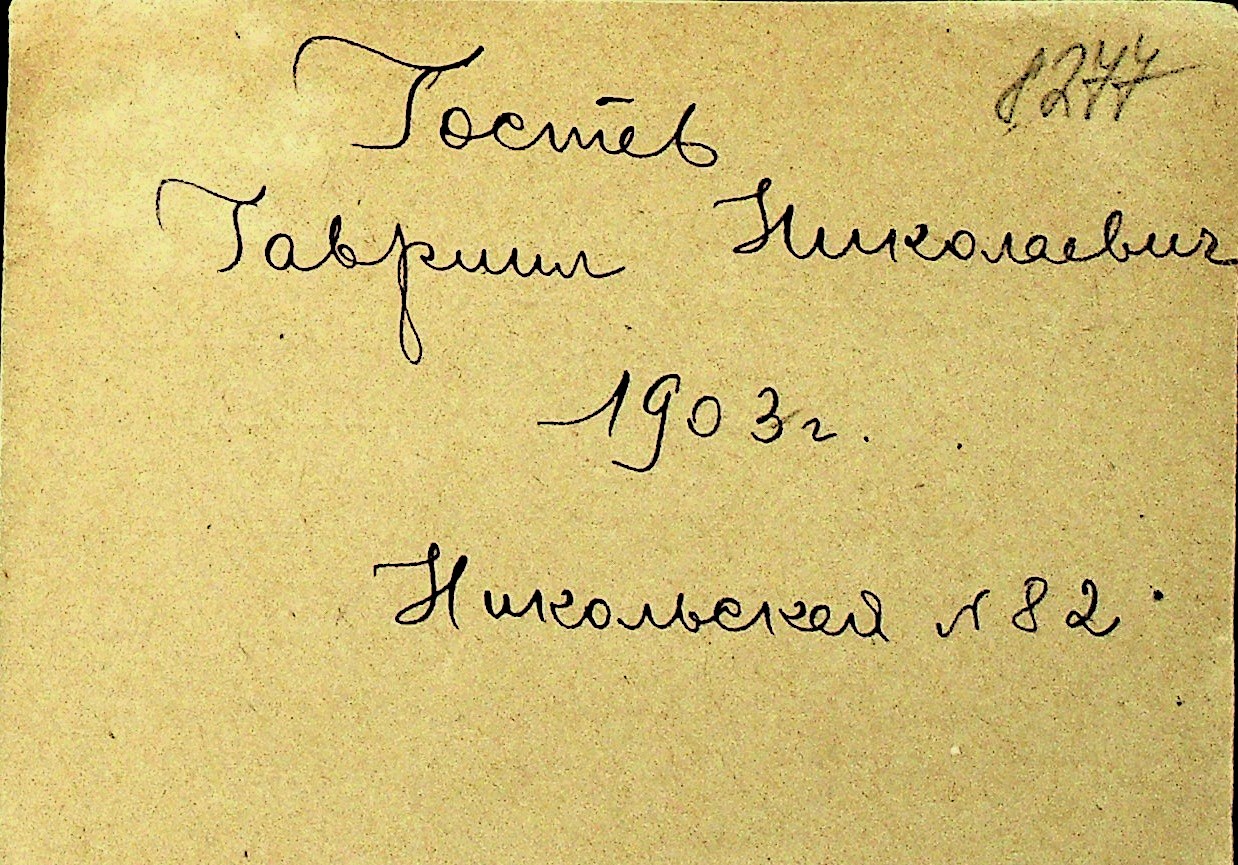 8277
Гостев
Гавриил Николаевич
1903 г.
Никольская № 82